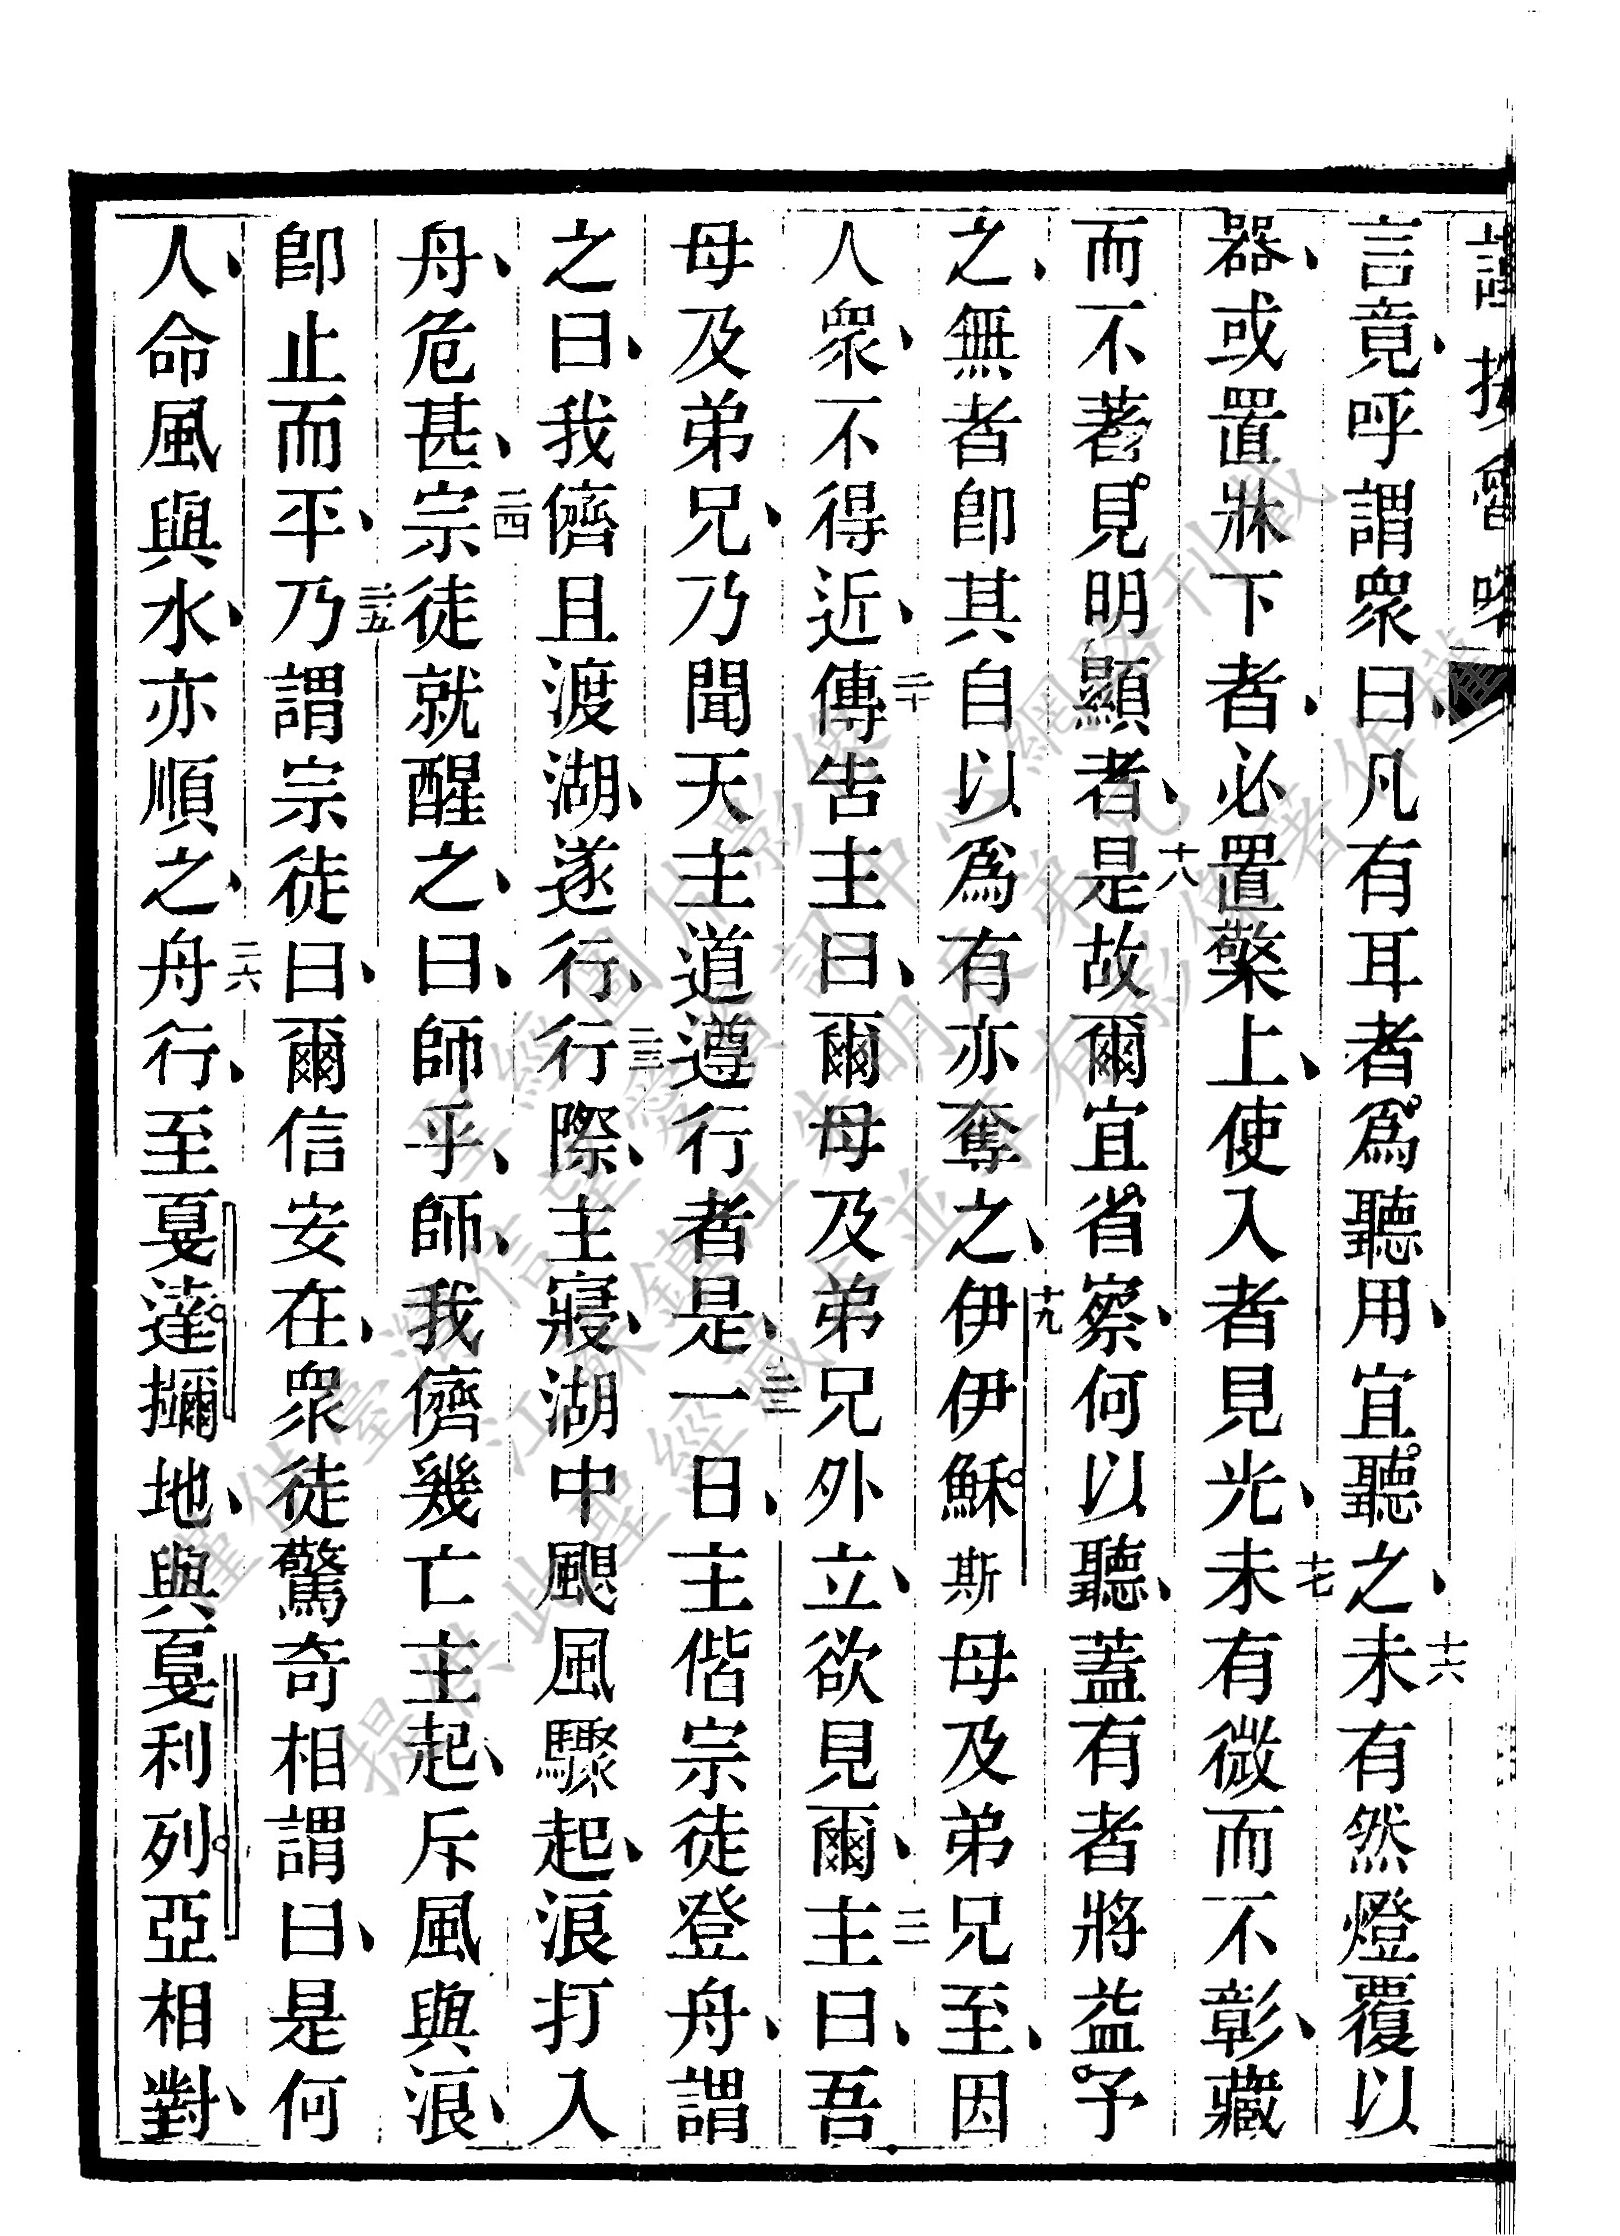 言竟、呼謂衆曰、凡有耳者爲聽用、宜聽之、十六未有然燈覆以
器、或置牀下者、必置檠上、使入者見光、十七未有微而不彰、藏
而不著見明顯者、十八是故爾宜省察、何以聽、蓋有者將益予
之、無者卽其自以爲有亦奪之、十九伊伊穌斯母及弟兄至、因
人衆、不得近、二十傳告主曰、爾母及弟兄外立、欲見爾、二一主曰、吾
母及弟兄、乃聞天主道遵行者是、二二一日、主偕宗徒登舟、謂
之曰、我儕且渡湖、遂行、二三行際、主寢、湖中颶風驟起、浪打入
舟、危甚、二四宗徒就醒之、曰、師乎、師、我儕幾亡、主起、斥風與浪、
卽止而平、二五乃謂宗徒曰、爾信安在、衆徒驚奇相謂曰、是何
人、命風與水、亦順之、二六舟行、至戛達獼地、與戛利列亞相對、